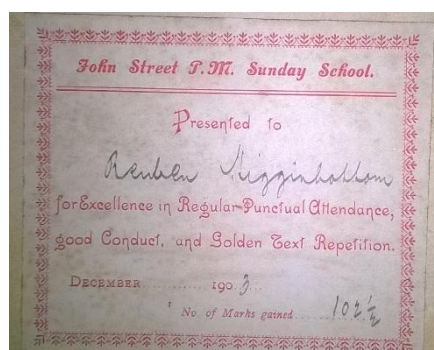 John Street P.M. Sunday School.
Presented to
Reuben Higginbottom
for Excellence in Regular Punctual Attendance,
good Conduct, and Golden Text Repetition.
DECEMBER.............. 1903....
No. of Marks gained.......... 102½